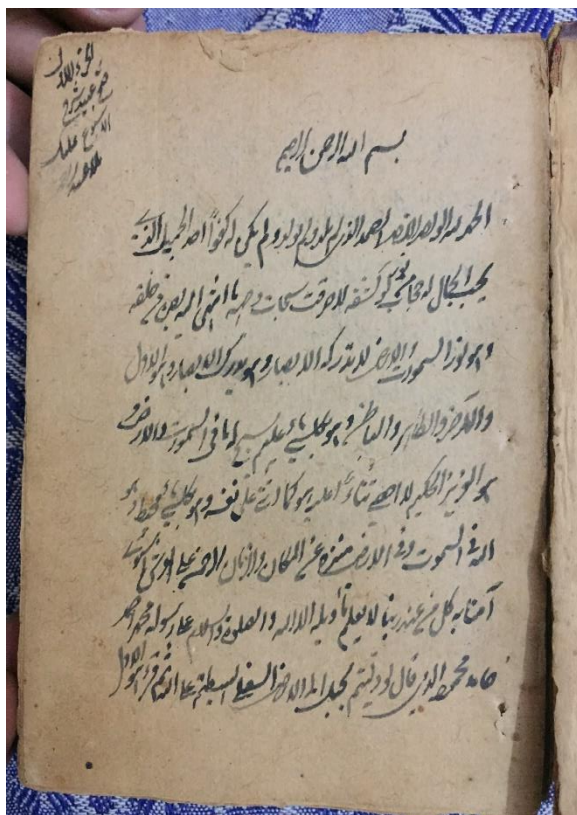 بسم الله الرحمن الرحيم
الحمد لله الواحد الاحد الصمد الذي لم يلد ولم يولد ولم يكن له كفوا احد الجميل الذي
يحب الجمال له حجاب نور لو كشفه لاحرقت سبحات وجهه ما انتهى اليه بصره من خلقه
وهو نور السموت والارض لا تدركه الابصار وهو يدرك الابصار وهو الاول
والآخر والظاهر والباطن وهو بكل شيء عليم سبح له ما في السموت والارض و
هو العزيز الحكيم لا احصي ثناء عليه هو كما اثنى على نفسه وهو بكل شيء محيط وهو
الله في السموت وفي الارض منزه عن المكان والزمان الرحمن على العرش استوى
آمنا به كل من عند ربنا لا يعلم تأويله الا الله والصلوة والسلام على رسوله محمد احمد
محمود الذي قال لو دليتم بحبل الى الارض السفلى لهبط على الله ثم قرأ هو الاول